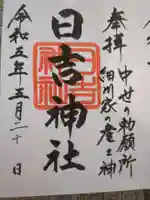 奉拝
中世の勅願所
細川家の産土神
日吉神社
令和五年五月二十日